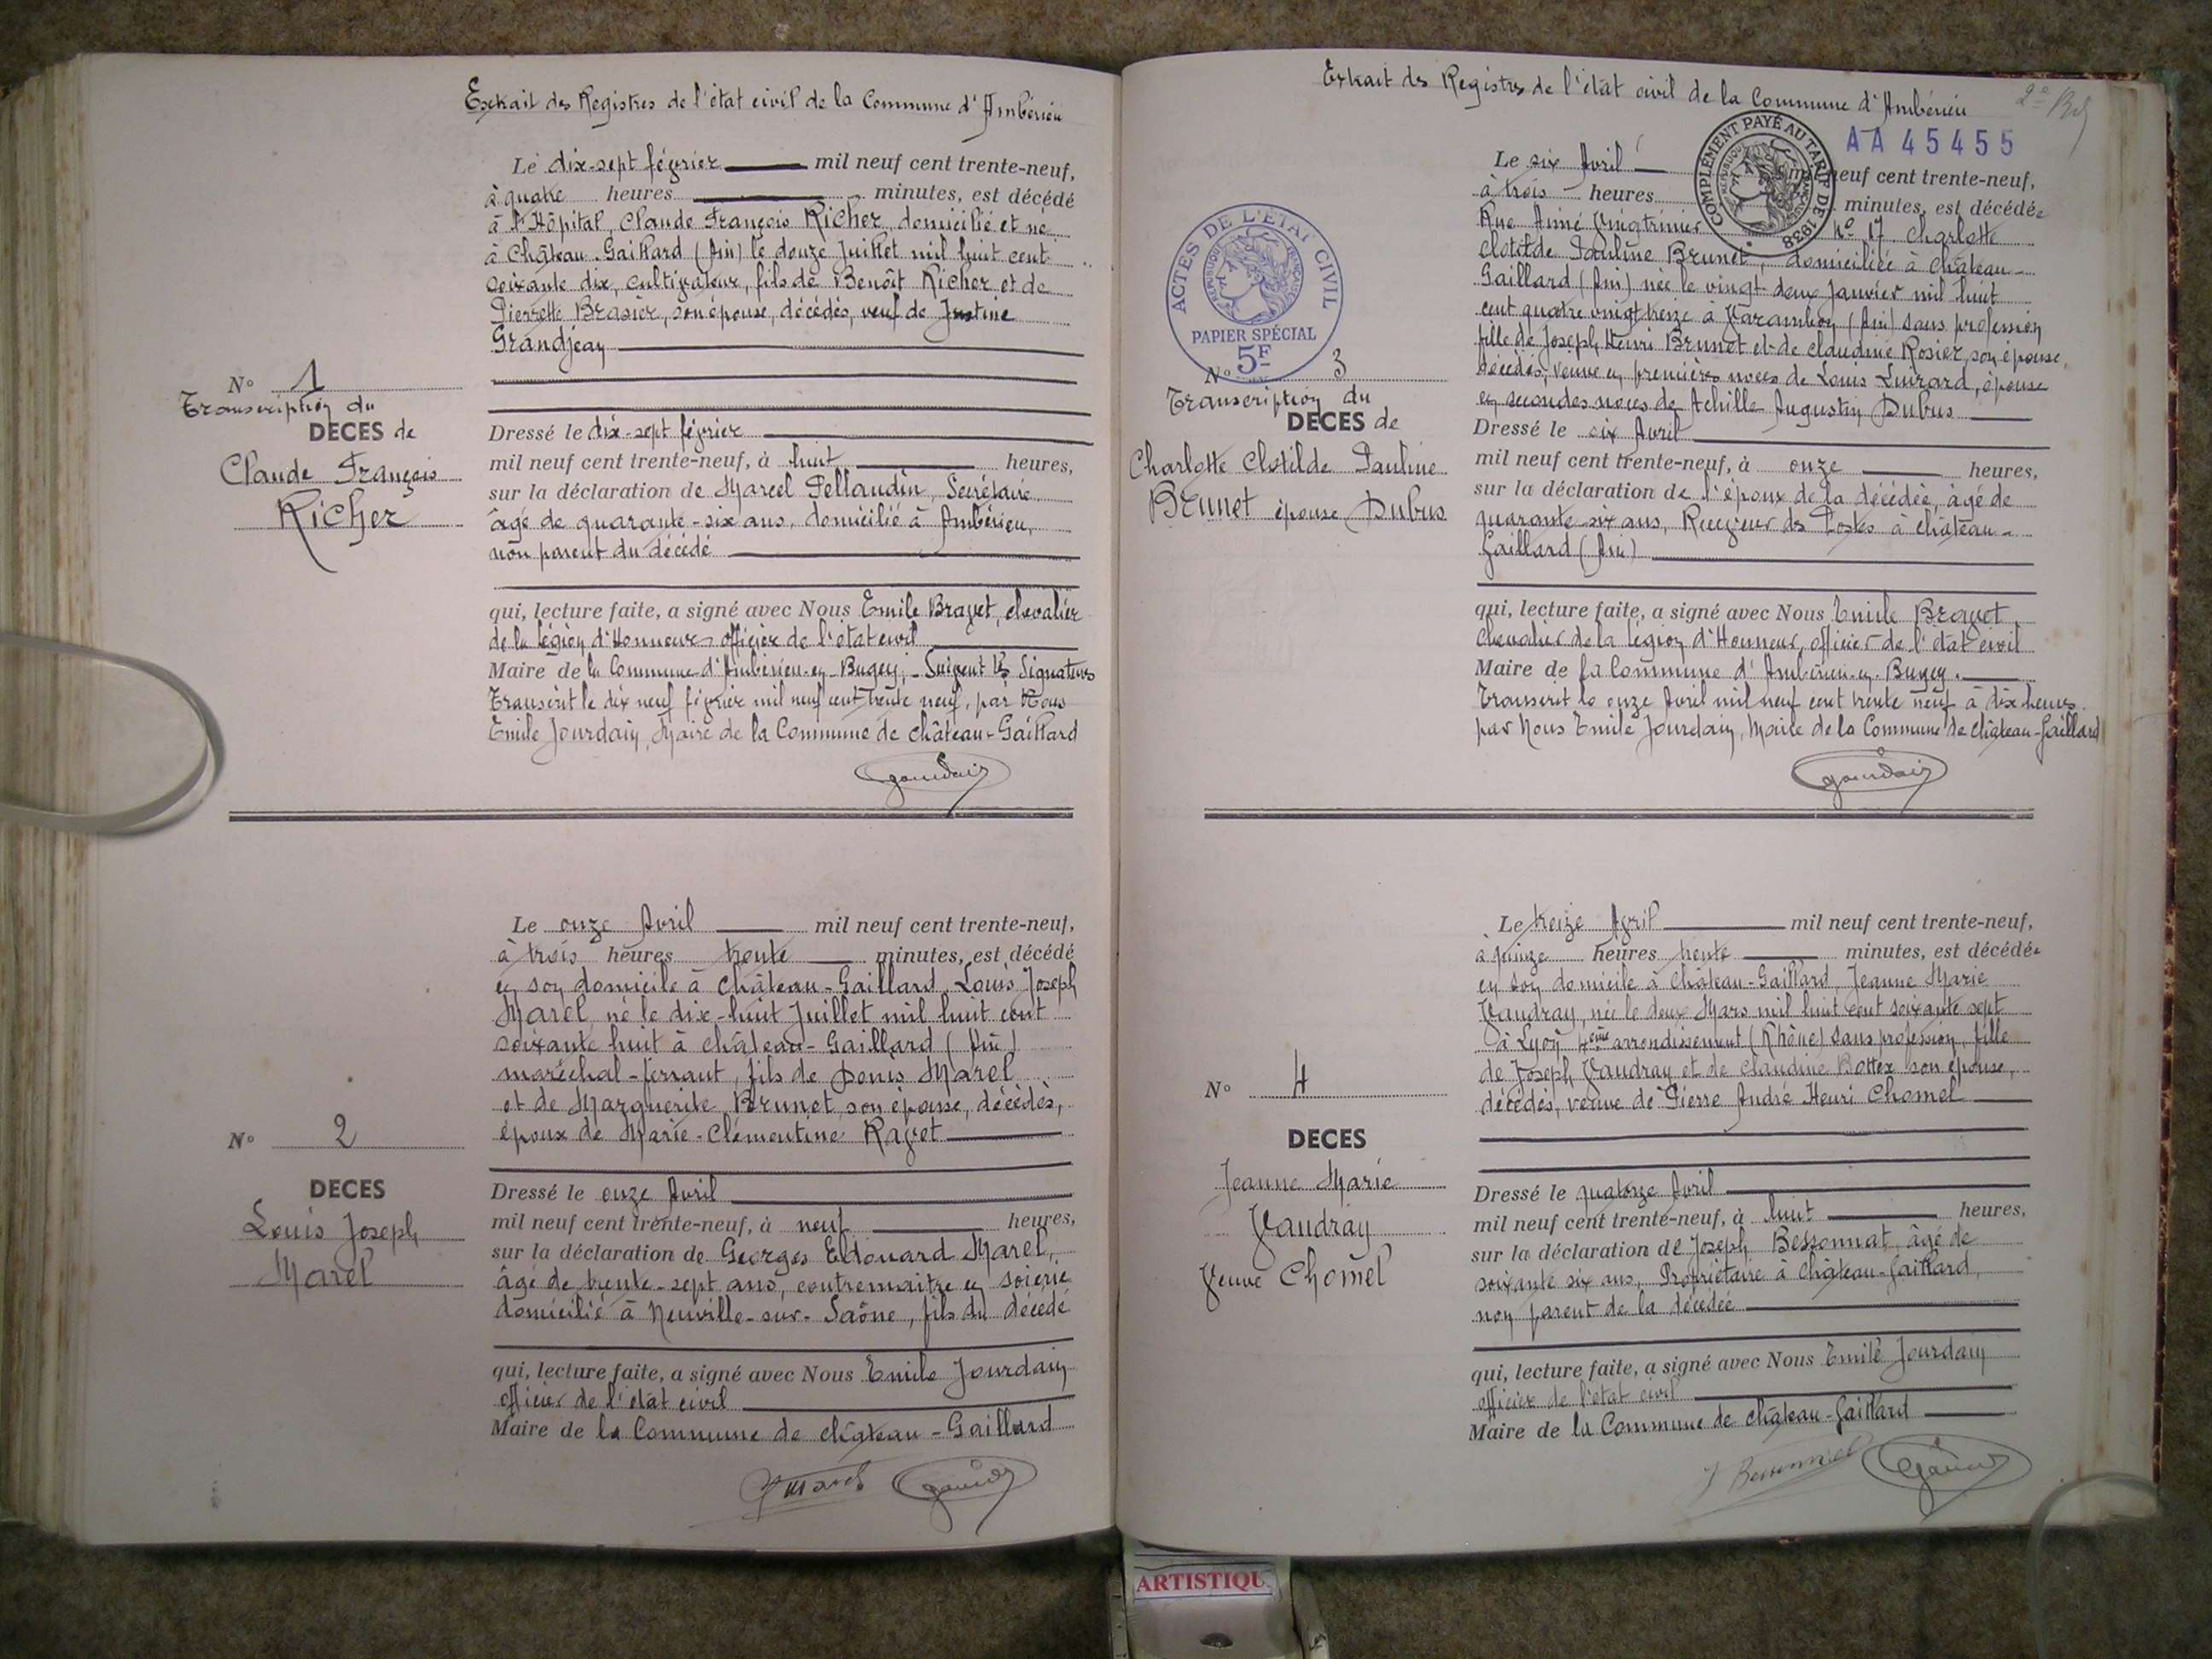 Extrait des Registres de l'état civil de la Commune d'Ambérieu
Le dix-sept février mil neuf cent trente-neuf,
à quatre heures minutes, est décédé
à l'Hôpital, Claude François Richer, domicilié et né
à Château-Gaillard (Ain) le douze Juillet mil huit cent
soixante dix, cultivateur, fils de Benoît Richer et de
Pierrette Brasier, son épouse, décédés, veuf de Justine
Grandjean
N° 1
Transcription du
DECES de
Claude François
Richer
Dressé le dix-sept février
mil neuf cent trente-neuf, à huit heures,
sur la déclaration de Marcel Pellaudin, Secrétaire
âgé de quarante-six ans, domicilié à Ambérieu,
non parent du décédé
qui, lecture faite, a signé avec Nous Emile Bravet, chevalier
de la légion d'Honneur officier de l'état civil
Maire de la Commune d'Ambérieu-en-Bugey, - Suivent les Signatures
Transcrit le dix neuf février mil neuf cent trente neuf, par Nous
Emile Jourdain, Maire de la Commune de Château-Gaillard
Jourdain
Le onze Avril mil neuf cent trente-neuf,
à trois heures trente minutes, est décédé
en son domicile à Château-Gaillard, Louis Joseph
Marel, né le dix-huit Juillet mil huit cent
soixante huit à Château-Gaillard (Ain)
maréchal-ferrant, fils de Denis Marel
et de Marguerite Brunet son épouse, décédés,
époux de Marie-Clémentine Ravet
N° 2
DECES
Louis Joseph
Marel
Dressé le onze Avril
mil neuf cent trente-neuf, à neuf heures,
sur la déclaration de Georges Edouard Marel,
âgé de trente-sept ans, contremaitre en soierie
domicilié à Neuville-sur-Saône, fils du décédé
qui, lecture faite, a signé avec Nous Emile Jourdain
officier de l'état civil
Maire de la Commune de Château-Gaillard
Marel Jourdain
Extrait des Registres de l'état civil de la Commune d'Ambérieu
AA 45455
COMPLÉMENT PAYÉ AU TARIF DE 1938
RÉPUBLIQUE FRANÇAISE
Le six Avril neuf cent trente-neuf,
à trois heures minutes, est décédée
Rue Aimé Vingtrinier N° 17 Charlotte
Clotilde Pauline Brunet, domiciliée à Château-
Gaillard (Ain) née le vingt-deux Janvier mil huit
cent quatre vingt treize à Varambon (Ain) sans profession
fille de Joseph Henri Brunet et de Claudine Rosier, son épouse,
décédés, veuve en premières noces de Louis Luirard, épouse
en secondes noces de Achille Augustin Dubus
ACTES DE L'ÉTAT CIVIL
RÉPUBLIQUE FRANÇAISE
PAPIER SPÉCIAL
5F
N° 3
Transcription du
DECES de
Charlotte Clotilde Pauline
Brunet épouse Dubus
Dressé le six Avril
mil neuf cent trente-neuf, à onze heures,
sur la déclaration de l'époux de la décédée, âgé de
quarante-six ans, Receveur des Postes à Château-
Gaillard (Ain)
qui, lecture faite, a signé avec Nous Emile Bravet
Chevalier de la légion d'Honneur, officier de l'état civil
Maire de la Commune d'Ambérieu-en-Bugey.
Transcrit le onze Avril mil neuf cent trente neuf à dix heures
par Nous Emile Jourdain, Maire de la Commune de Château-Gaillard
Jourdain
Le treize Avril mil neuf cent trente-neuf,
à quinze heures trente minutes, est décédée
en son domicile à Château-Gaillard, Jeanne Marie
Vaudray, née le deux Mars mil huit cent soixante sept
à Lyon 4ème arrondissement (Rhône) sans profession, fille
de Joseph Vaudray et de Claudine Bottex son épouse,
décédés, veuve de Pierre André Henri Chomel
N° 4
DECES
Jeanne Marie
Vaudray
Veuve Chomel
Dressé le quatorze Avril
mil neuf cent trente-neuf, à huit heures,
sur la déclaration de Joseph Bessonnat, âgé de
soixante six ans, Propriétaire à Château-Gaillard,
non parent de la décédée
qui, lecture faite, a signé avec Nous Emile Jourdain
officier de l'état civil
Maire de la Commune de Château-Gaillard
J Bessonnat Jourdain
ARTISTIQU